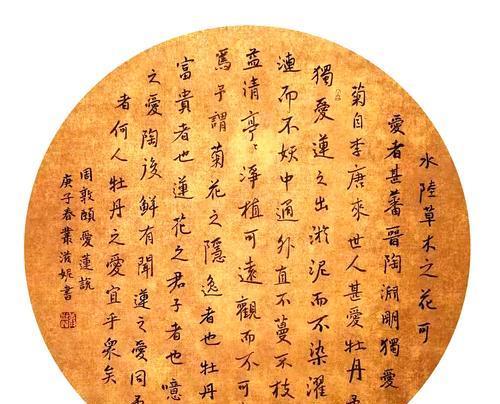 水陸草木之花可
愛者甚蕃晉陶淵明獨愛
菊自李唐來世人甚愛牡丹
獨愛蓮之出淤泥而不染濯
漣而不妖中通外直不蔓不枝
益清亭〻淨植可遠觀而不可
焉予謂菊花之隱逸者也牡丹
富貴者也蓮花之君子者也噫
之愛陶後鮮有聞蓮之愛同
者何人牡丹之愛宜乎眾矣
周敦頤愛蓮說
庚子春叢妮書